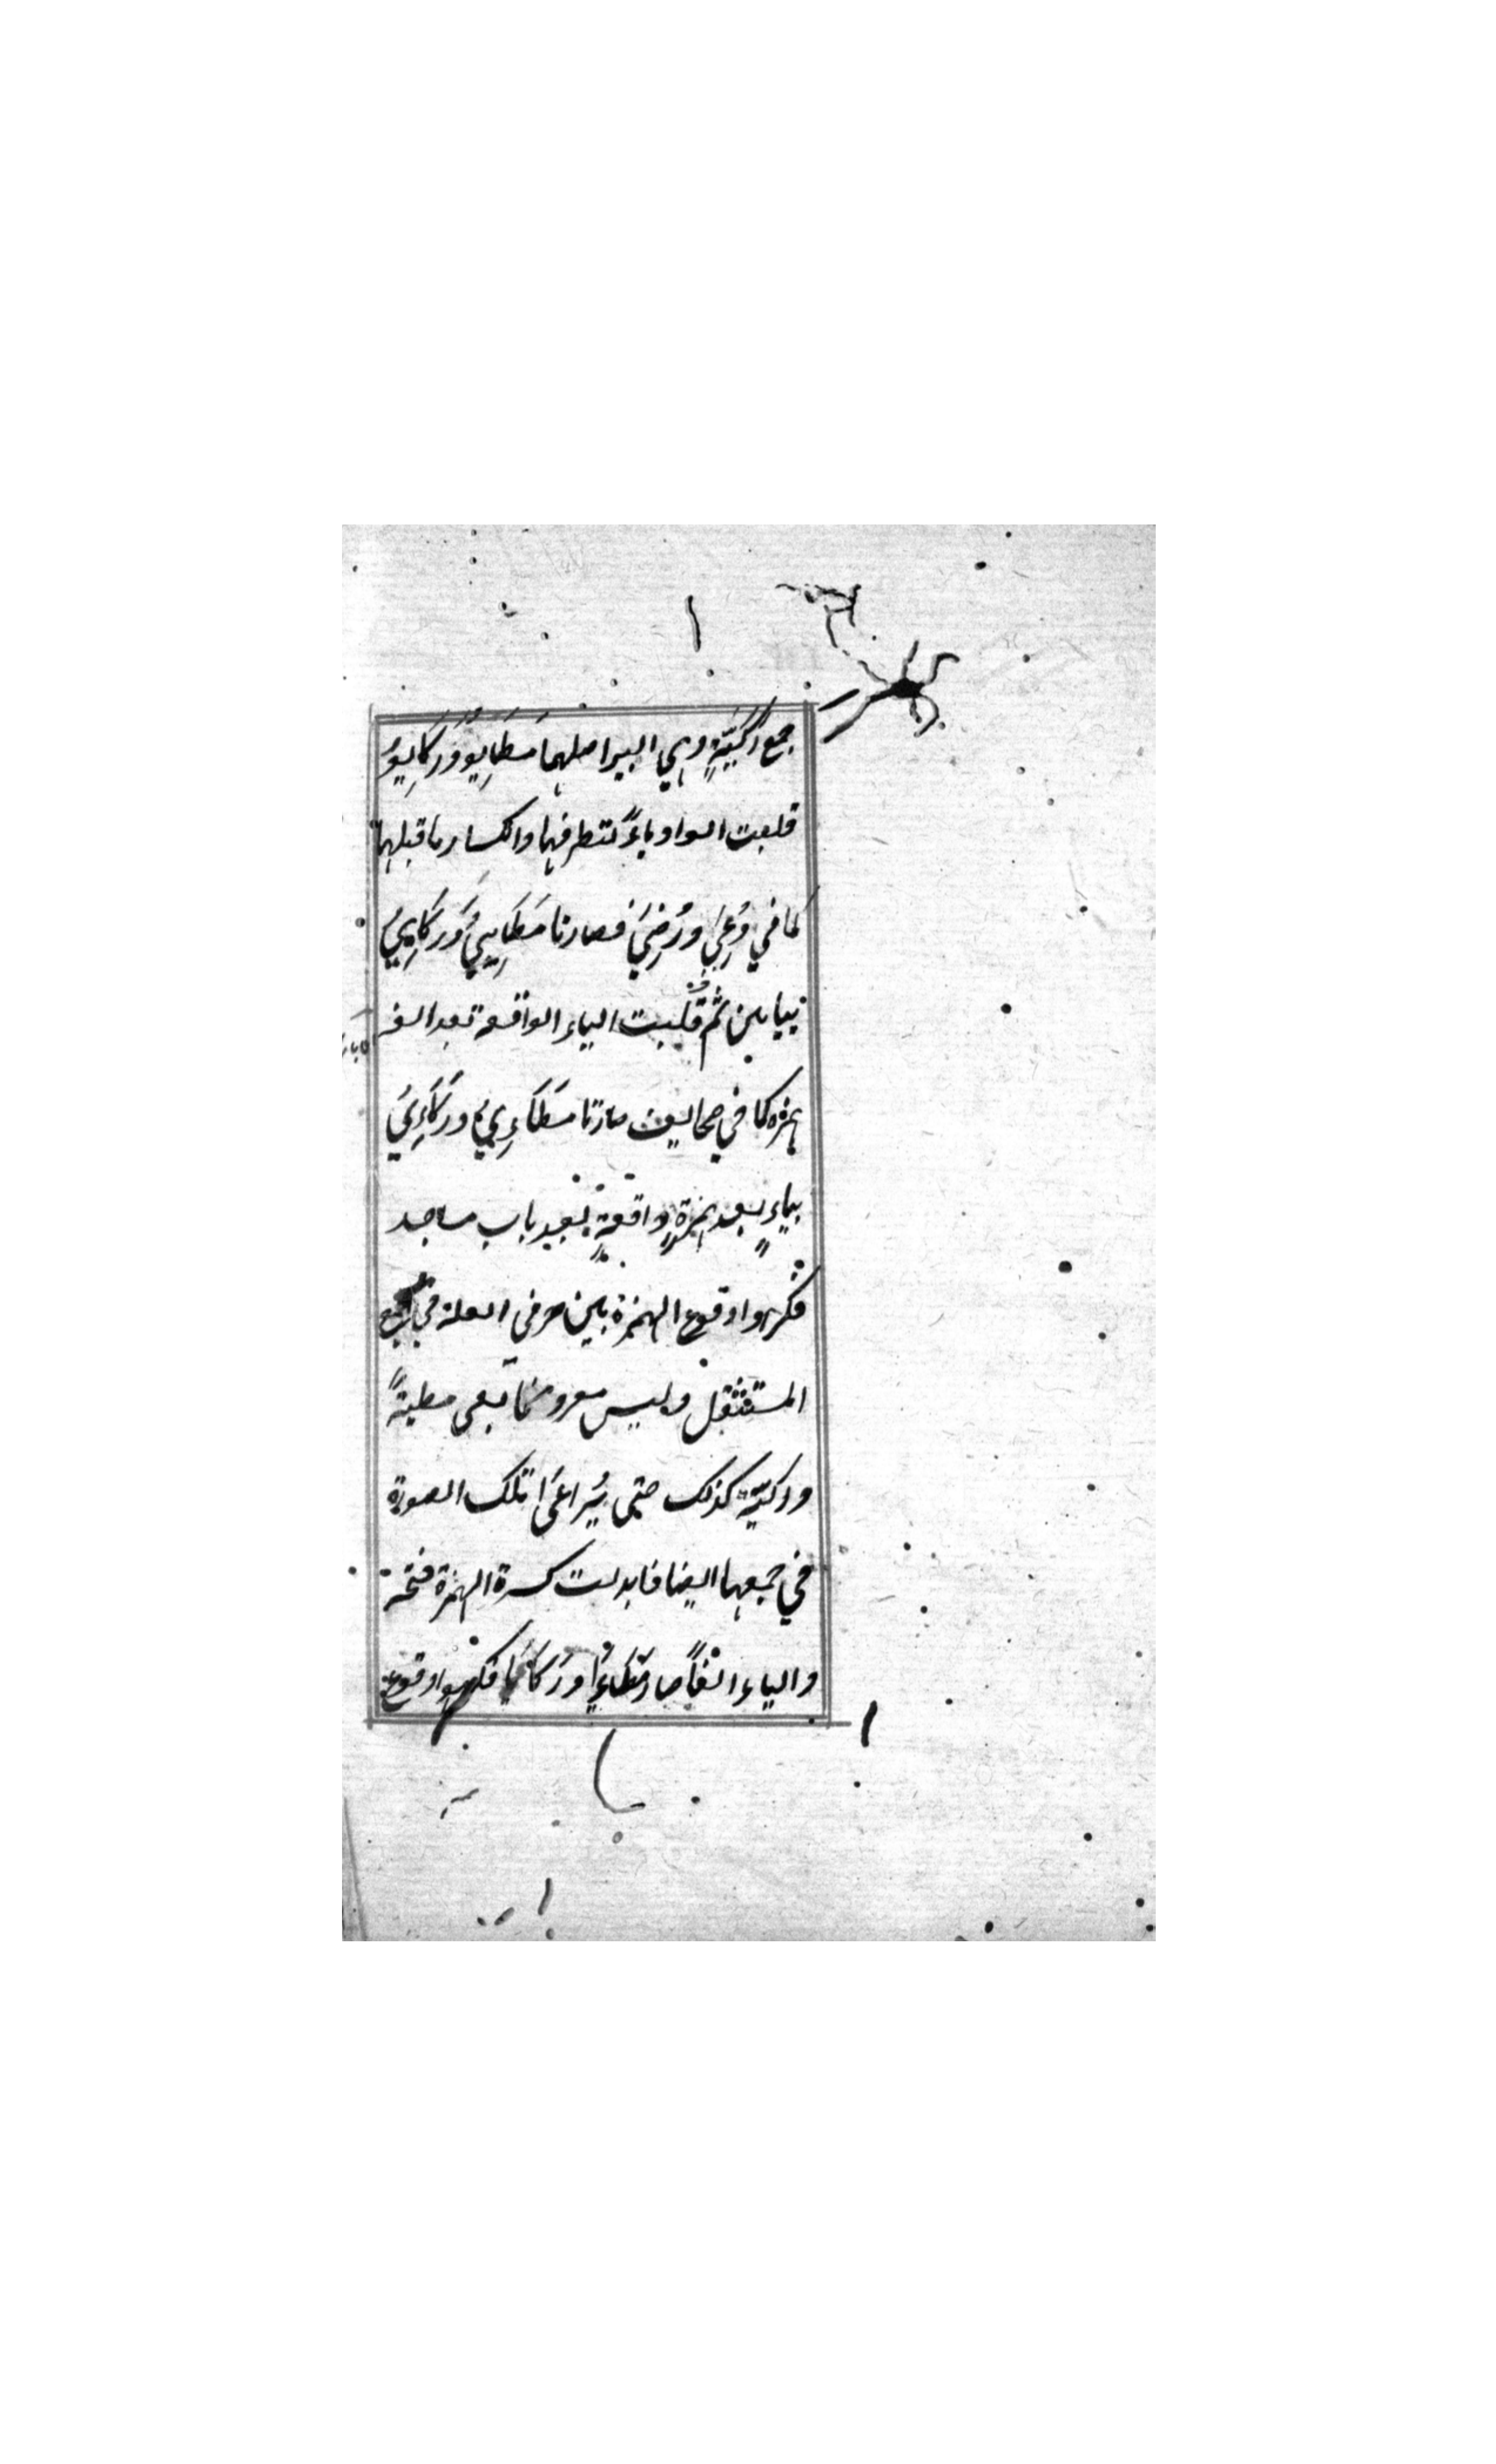 جمع رَكِيَّةٍ وهي البير اصلهما مَطَايِوُ وَرَكَايِوُ
قلبت الواو ياءً لتطرفها وانكسار ما قبلها
كما في دُعِيَ ورُضِيَ فصارتا مَطَايِيُ وَرَكَايِيُ
بيايين ثم قُلبت الياء الواقعة بعد الف
همزة كما في صحايف صارتا مَطَاءِيُ ورَكَاءِيُ
بياءٍ بعد همزةٍ واقعةٍ بعد باب مساجد
فكرهوا وقوع الهمزة بين حرفي العلة في
المستثقل وليس معروضا بقى مطيةً
وركيّة كذلك حتى يُراعَىٰ تلك الصورة
في جمعهما ايضا فابدلت كسرة الهمزة فتحة
والياء الفاً صار مَطَاءَا ورَكَاءَا فكرهوا وقوع